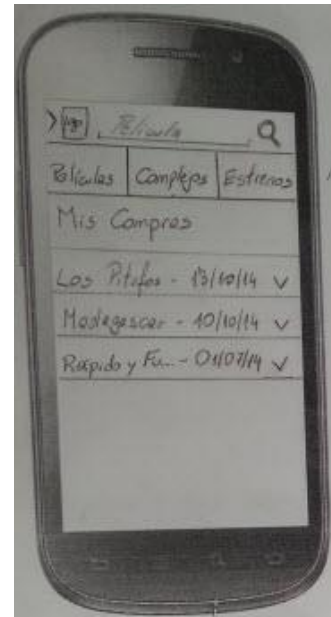 logo Película
Películas Complejos Estrenos
Mis Compras
Los Pitufos - 13/10/14
Madagascar - 10/10/14
Rápido y Fu... - 01/07/14